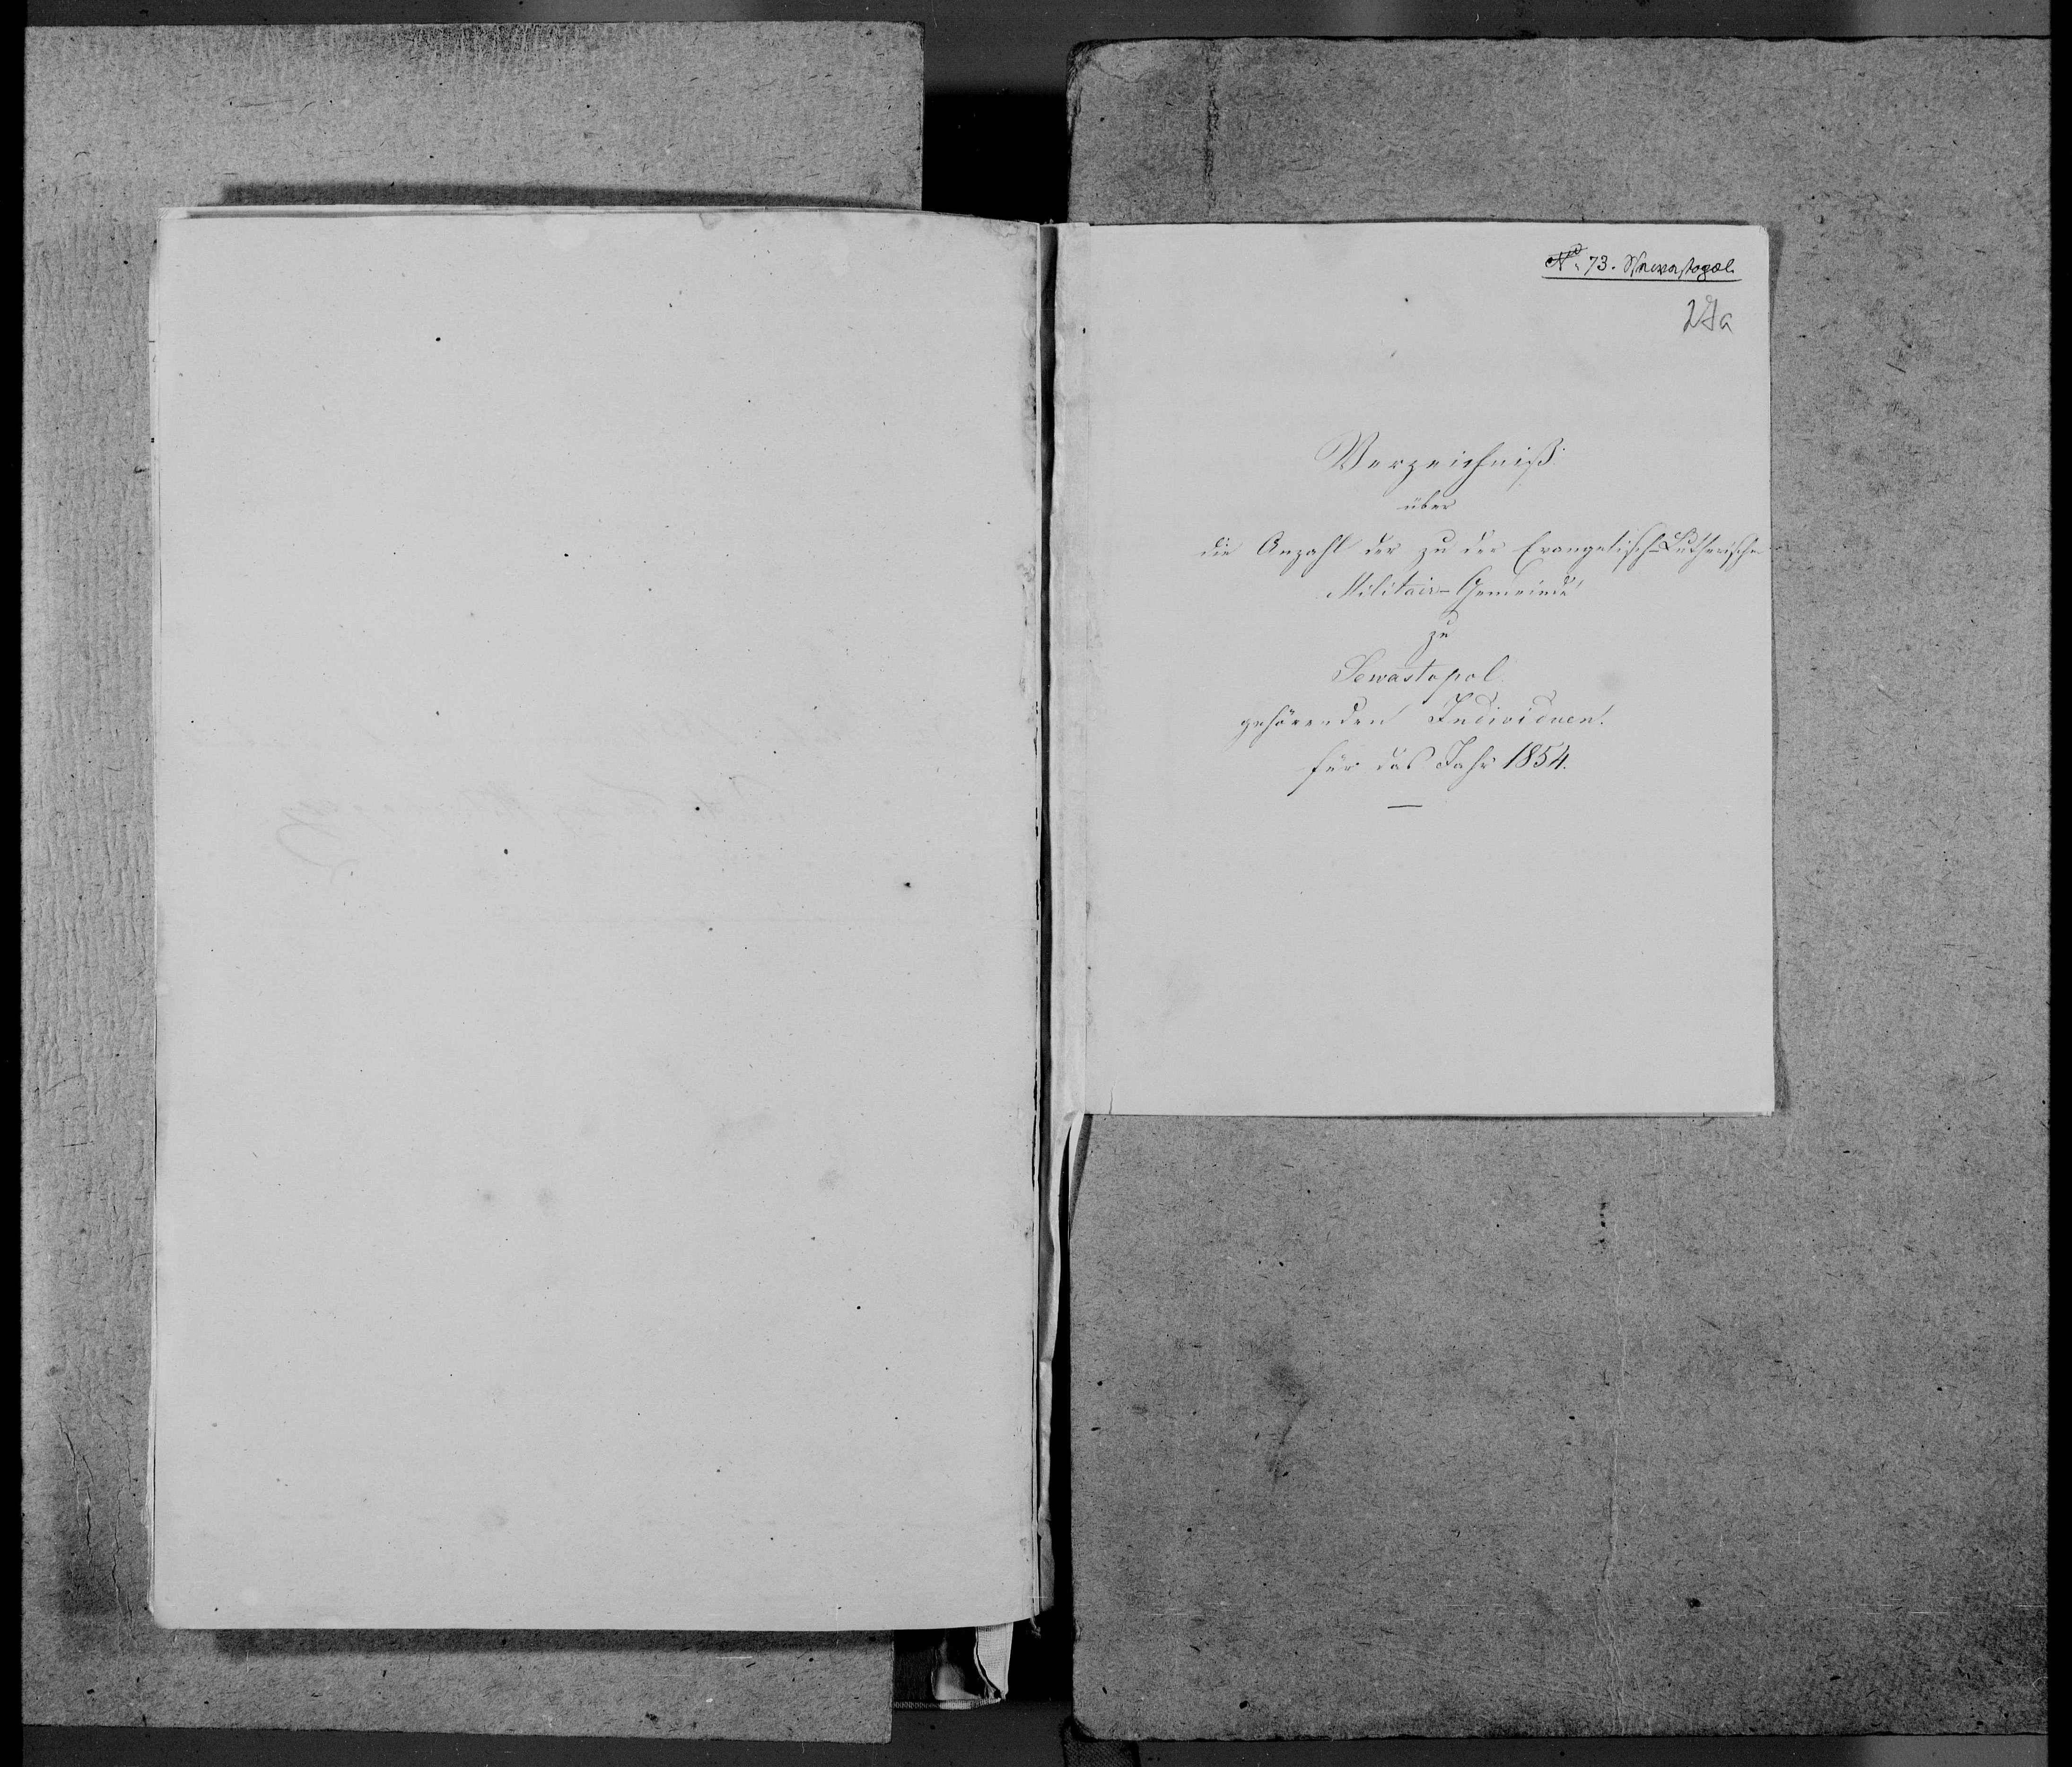 No 73. Sewastopol.
27a
Verzeichniß
über
die Anzahl der zu der Evangelisch-Lutherischen
Militair-Gemeinde
zu
Sewastopol
gehörenden Individuen.
für das Jahr 1854.